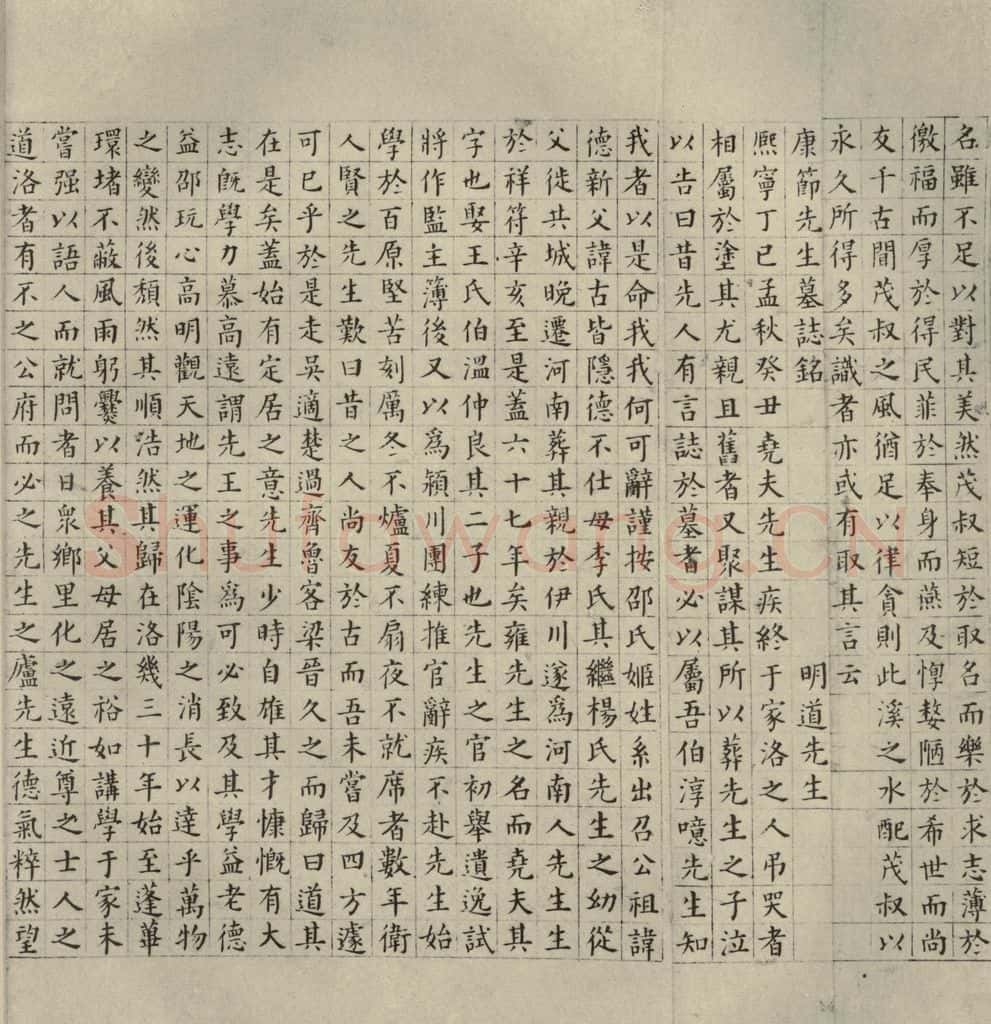 名雖不足以對其美然茂叔短於取名而樂於求志薄於
徼福而厚於得民菲於奉身而燕及惸嫠陋於希世而尚
友千古聞茂叔之風猶足以律貪則此溪之水配茂叔以
永久所得多矣識者亦或有取其言云
康節先生墓誌銘 明道先生
熈寧丁巳孟秋癸丑堯夫先生疾終于家洛之人弔哭者
相屬於塗其尤親且舊者又聚謀其所以葬先生之子泣
以告曰昔先人有言誌於墓者必以屬吾伯淳噫先生知
我者以是命我我何可辭謹按邵氏姬姓系出召公祖諱
德新父諱古皆隱德不仕母李氏其繼楊氏先生之幼從
父徙共城晚遷河南葬其親於伊川遂爲河南人先生生
於祥符辛亥至是蓋六十七年矣雍先生之名而堯夫其
字也娶王氏伯溫仲良其二子也先生之官初舉遺逸試
將作監主簿後又以爲潁川團練推官辭疾不赴先生始
學於百原堅苦刻厲冬不爐夏不扇夜不就席者數年衛
人賢之先生歎曰昔之人尚友於古而吾未嘗及四方遽
可已乎於是走吳適楚過齊魯客梁晉久之而歸曰道其
在是矣蓋始有定居之意先生少時自雄其才慷慨有大
志既學力慕高遠謂先王之事爲可必致及其學益老德
益邵玩心高明觀天地之運化陰陽之消長以達乎萬物
之變然後頹然其順浩然其歸在洛幾三十年始至蓬蓽
環堵不蔽風雨躬爨以養其父母居之裕如講學于家未
嘗强以語人而就問者日眾鄉里化之遠近尊之士人之
道洛者有不之公府而必之先生之廬先生德氣粹然望
Shufawang.CN